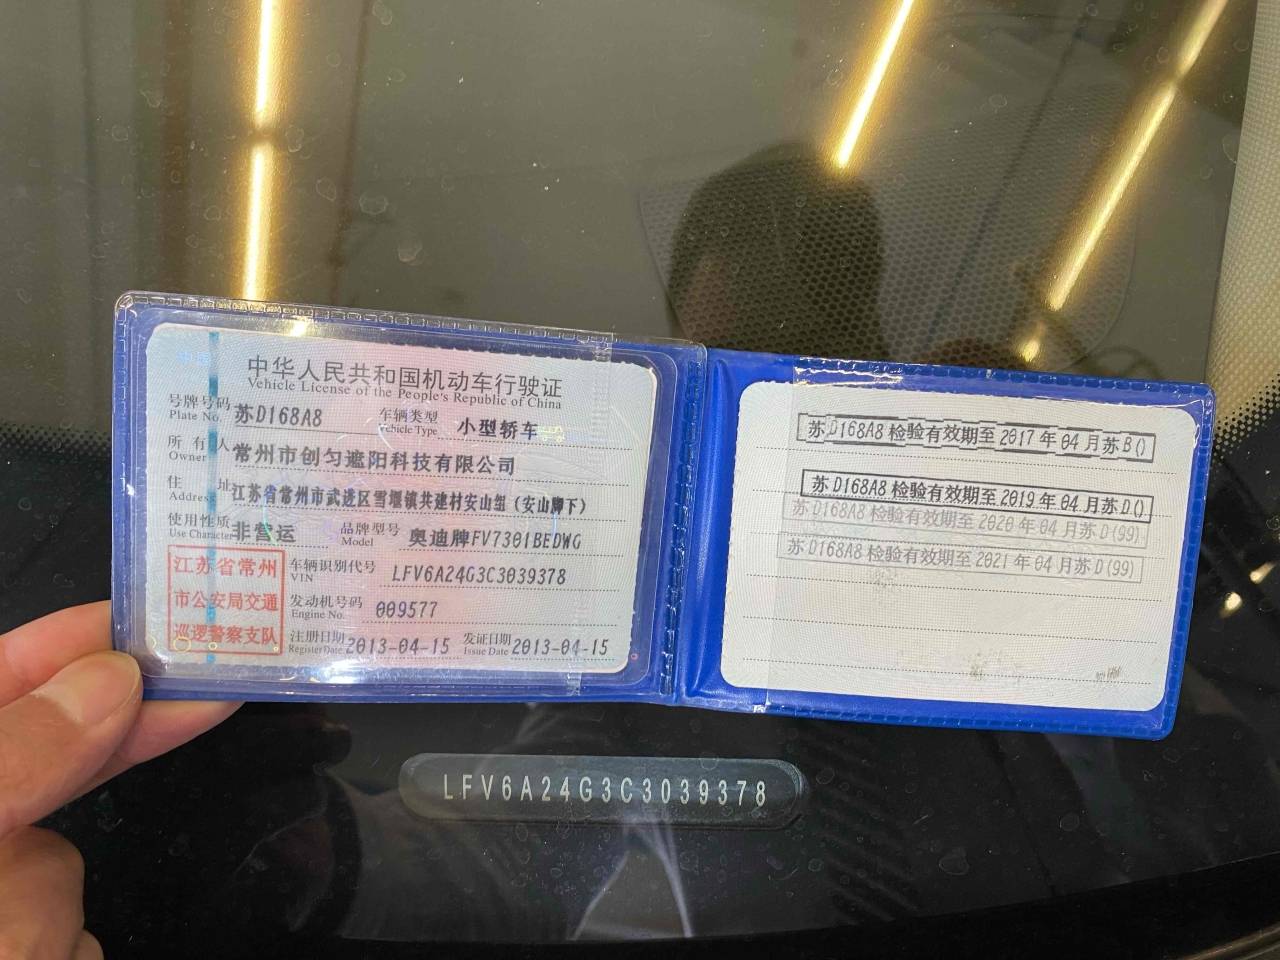 中华人民共和国机动车行驶证
Vehicle License of the People's Republic of China
号牌号码 苏D168A8 车辆类型 小型轿车
Plate No. Vehicle Type
所有人 常州市创匀遮阳科技有限公司
Owner
住址 江苏省常州市武进区雪堰镇共建村安山组（安山脚下）
Address
使用性质 非营运 品牌型号 奥迪牌FV7301BEDWG
Use Character Model
江苏省常州
市公安局交通
巡逻警察支队
车辆识别代号 LFV6A24G3C3039378
VIN
发动机号码 009577
Engine No.
注册日期 2013-04-15 发证日期 2013-04-15
Register Date Issue Date
苏D168A8检验有效期至2017年04月苏B()
苏D168A8检验有效期至2019年04月苏D()
苏D168A8检验有效期至2020年04月苏D(99)
苏D168A8检验有效期至2021年04月苏D(99)
LFV6A24G3C3039378